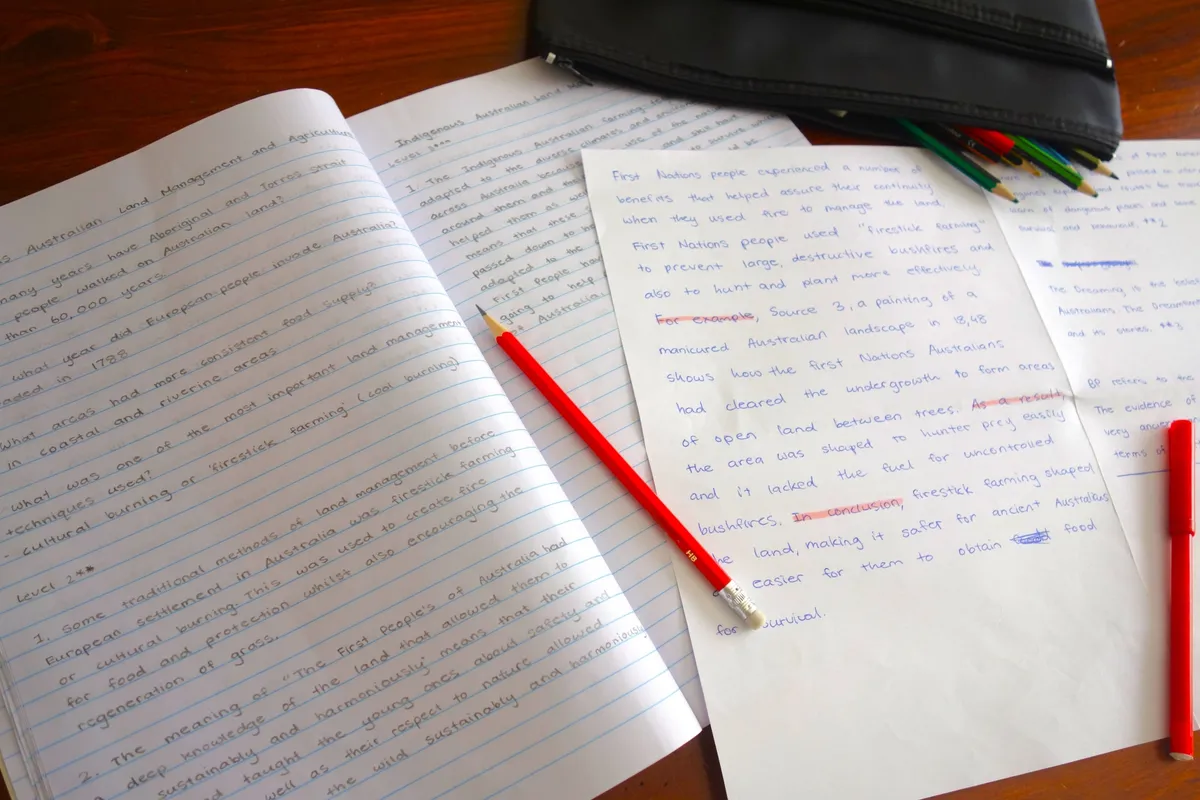 s Australian Land Management and Agriculture
many years have Aboriginal and Torres Strait
people walked on Australian land?
than 60,000 years.
what year did European people invade Australia?
aded in 1788
What areas had more consistent food supply?
in coastal and riverine areas
What was one of the most important land management
techniques used?
- cultural burning or 'firestick farming' (cool burning)
Level 2**
1. Some traditional methods of land management before
European settlement in Australia was firestick farming
or cultural burning. This was used to create fire
for food and protection whilst also encouraging the
regeneration of grass.
2. The meaning of "The First People's of Australia had
a deep knowledge of the land that allowed them to
sustainably and harmoniously" means that their
taught the young ones about safety and
well as their respect to nature allowed
the wild sustainably and harmoniously
Indigenous Australian Land
Level 3***
1 The Indigenous Australian farming
adapted to the diverse
across Australia because
around them and
helped them as
means that these
passed down to
adapted to the
First people
going to help
Australia.
First Nations people experienced a number of
benefits that helped assure their continuity
when they used fire to manage the land.
First Nations people used "firestick farming"
to prevent large, destructive bushfires and
also to hunt and plant more effectively
For example, Source 3, a painting of a
manicured Australian landscape in 18,48
shows how the first Nations Australians
had cleared the undergrowth to form areas
of open land between trees. As a result,
the area was shaped to hunter prey easily
and it lacked the fuel for uncontrolled
bushfires. In conclusion, firestick farming shaped
the land, making it safer for ancient Australians
easier for them to obtain food
for survival.
of dangerous places and
survival and
The Dreaming is the
Australians. The Dreaming
and its stories. **3
BP refers to the
The evidence of
very
terms of
HB